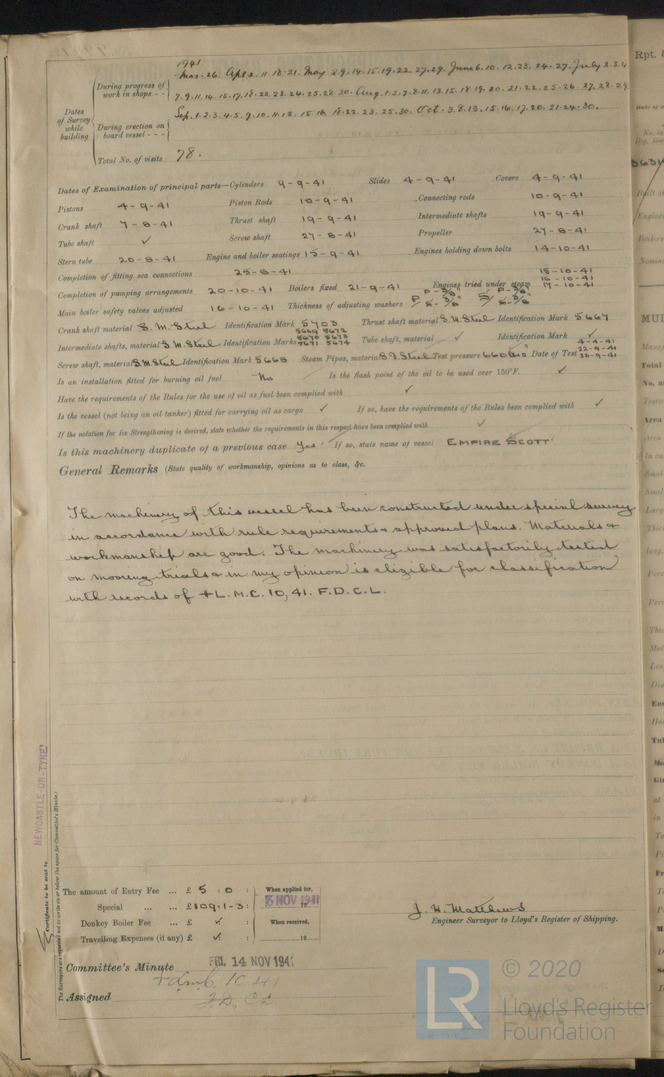 1941
Mar. 26. Apl. 2. 11. 18. 21. May 8. 9. 14. 15. 19. 22. 27. 29. June 6. 10. 12. 23. 24. 27. July 2. 3. 4
During progress of work in shops - -
7. 9. 11. 14. 15. 17. 18. 22. 23. 24. 25. 28. 30. Aug. 1. 5. 7. 8. 11. 13. 15. 18. 19. 20. 21. 22. 25. 26. 27. 28. 29
Dates of Survey while building
During erection on board vessel - - -
Sep. 1. 2. 3. 4. 5. 9. 10. 11. 12. 15. 16. 18. 22. 23. 25. 30. Oct. 3. 8. 13. 15. 16. 17. 20. 21. 24. 30.
Total No. of visits 78.
Dates of Examination of principal parts—Cylinders 9-9-41 Slides 4-9-41 Covers 4-9-41
Pistons 4-9-41 Piston Rods 10-9-41 Connecting rods 10-9-41
Crank shaft 7-8-41 Thrust shaft 19-9-41 Intermediate shafts 19-9-41
Tube shaft ✓ Screw shaft 27-8-41 Propeller 27-8-41
Stern tube 20-8-41 Engine and boiler seatings 15-9-41 Engines holding down bolts 14-10-41
Completion of fitting sea connections 25-8-41
Completion of pumping arrangements 20-10-41 Boilers fixed 21-9-41 Engines tried under steam 15-10-41 16-10-41 17-10-41
Main boiler safety valves adjusted 16-10-41 Thickness of adjusting washers
Crank shaft material S. M. Steel Identification Mark 5703 Thrust shaft material S. M. Steel Identification Mark 5667
Intermediate shafts, material S. M. Steel Identification Marks 5669 5672 5670 5673 5671 5674 Tube shaft, material ✓ Identification Mark ✓
Screw shaft, material S. M. Steel Identification Mark 5668 Steam Pipes, material S. D. Steel Test pressure 660 Date of Test 4-4-41 22-9-41
Is an installation fitted for burning oil fuel No Is the flash point of the oil to be used over 150°F. ✓
Have the requirements of the Rules for the use of oil as fuel been complied with ✓
Is the vessel (not being an oil tanker) fitted for carrying oil as cargo ✓ If so, have the requirements of the Rules been complied with ✓
If the notation for Ice Strengthening is desired, state whether the requirements in this respect have been complied with ✓
Is this machinery duplicate of a previous case Yes If so, state name of vessel EMPIRE SCOTT
General Remarks (State quality of workmanship, opinions as to class, &c.
The machinery of this vessel has been constructed under special survey
in accordance with rule requirements & approved plans. Materials &
workmanship are good. The machinery was satisfactorily tested
on mooring trials & in my opinion is eligible for classification
with records of + L.M.C. 10,41. F.D. C.L.
NEWCASTLE-ON-TYNE
Certificate to be sent to
The Surveyors are requested not to write on or below the space for Committee's Minute.
The amount of Entry Fee ... £ 5 : 0 : When applied for,
Special ... £109 : 1-3 : 3 NOV 1941
Donkey Boiler Fee ... £ ✓ : When received,
Travelling Expenses (if any) £ ✓ : 19
J. H. Matthews
Engineer Surveyor to Lloyd's Register of Shipping.
Committee's Minute FRI. 14 NOV 1941
+ Lmc 10.41
Assigned F.D. CL
LR
© 2020
Lloyd's Register
Foundation